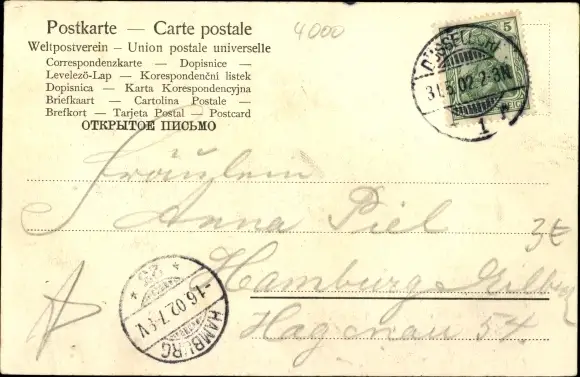 Postkarte — Carte postale
4000
Weltpostverein — Union postale universelle
Correspondenzkarte — Dopisnice —
Levelező-Lap — Korespondenční listek
Dopisnica — Karta Korespondencyjna
Briefkaart — Cartolina Postale —
Brefkort — Tarjeta Postal — Postcard
ОТКРЫТОЕ ПИСЬМО
5
DÜSSELDORF
31.5.02.2-3N
1
Fräulein
Anna Piel
3E
Hamburg
Hagenau 54
-1.6.02.7-V
HAMBURG